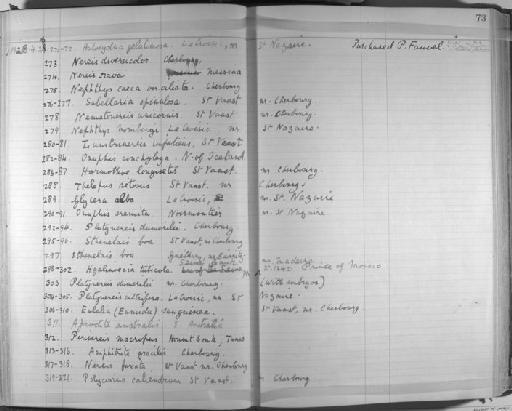 73
1928.4.26. Halosydna gelatinosa. Le Croisic, nr St Nazaire. Purchased P. Fauvel
273 Nereis diversicolor Cherbourg
274. Nereis Messina
275. Nephthys caeca Cherbourg
276-277. Sabellaria spinulosa. St Vaast nr. Cherbourg
278 St Vaast nr. Cherbourg
279. Nephthys hombergi Le Croisic. nr St Nazaire.
280-81 Lumbriconereis St Vaast
282-84. Onuphis conchylega. N. of Iceland
286-87 Harmothoe longisetis St Vaast. nr Cherbourg.
288. Thelepus setosus St Vaast. nr Cherbourg
289. Glycera alba Le Croisic, nr. St. Nazaire
290-91. Onuphis eremita Noirmoutier nr St Nazaire
292-94. Platynereis dumerilii. Cherbourg
295-96. Sthenelais boa St Vaast, nr Cherbourg
297 Sthenelais boa
298-302. Hyalinoecia tubicola Prince of Monaco
303 Platynereis dumerilii nr. Cherbourg. (with embryos)
304-305. Platynereis Le Croisic, nr St Nazaire.
306-310. Eulalia (Eumida) sanguinea. St Vaast, nr. Cherbourg
311. Aphrodite australis S. Australia
312. Perinereis macropus Tunis
313-316. Amphitrite gracilis Cherbourg.
317-318. Nereis fucata St Vaast nr. Cherbourg
319-321. Polycirrus caliendrum St Vaast. nr Cherbourg